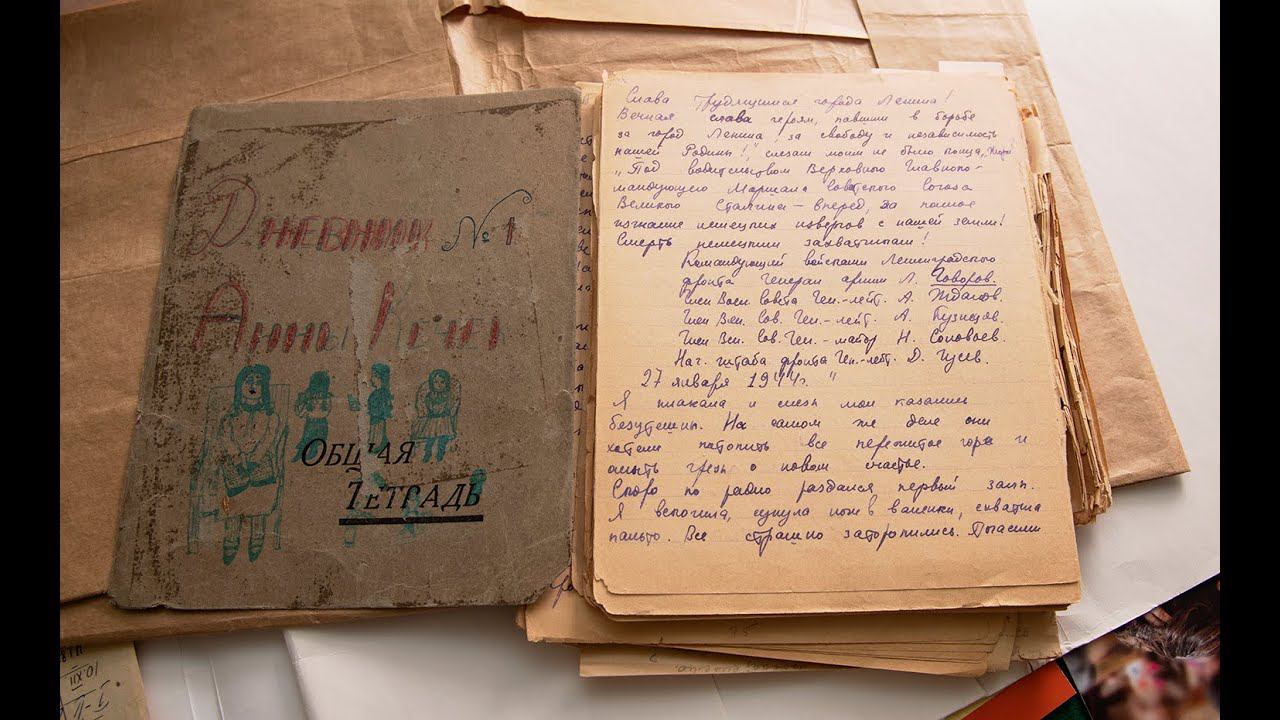 Дневник №1
Анны
Общая
Тетрадь
Слава трудящимся города Ленина!
Вечная слава героям, павшим в борьбе
за город Ленина, за свободу и независимость
нашей Родины!", слезам моим не было конца,
"Под водительством Верховного Главноко-
мандующего Маршала Советского Союза
Великого Сталина – вперед, за полное
изгнание немецких извергов с нашей земли!
Смерть немецким захватчикам!
Командующий войсками Ленинградского
фронта Генерал армии Л. Говоров.
Член Воен. Совета Ген.-лейт. А. Жданов.
Член Вен. Сов. Ген.-лейт. А. Кузнецов.
Член Вен. Сов. Ген.-майор Н. Соловьев.
Нач. штаба фронта Ген.-лейт. Д. Гусев.
27 января 1944г. "
Я плакала и слезы мои казались
безутешны. На самом же деле они
хотели потопить все пережитое горе и
омыть грезы о новом счастье.
Скоро по радио раздался первый залп.
Я вскочила, сунула ноги в валенки, схватила
пальто. Все страшно заторопились. Погасили
10.XII